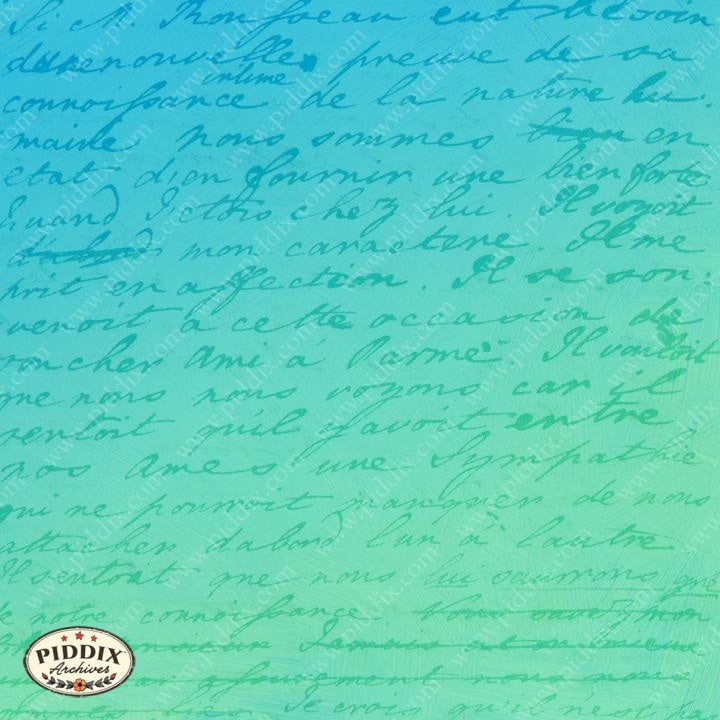 Si M. Ronsseau eut besoin
d'une nouvelle preuve de sa
intime
connoissance de la nature hu-
maine nous sommes bien en
etat d'en fournir une bien forte
quand J'etois chez lui. Il voyoit
d'abord mon caractere. Il me
prit en affection. Il se sou-
venoit à cette occasion de
son cher Ami à Parme". Il vouloit
que nous nous voyons car il
sentoit qu'il y avoit entre
nos Ames une Sympathie
qui ne pourroit manquer de nous
attacher d'abord l'un à l'autre
Il sentoit que nous lui saurions gré
de notre connoissance. Vous savez mon
Jamais mieux
nous
bien. Je crois qu'il n'est
PIDDIX
Archives
www.piddix.com